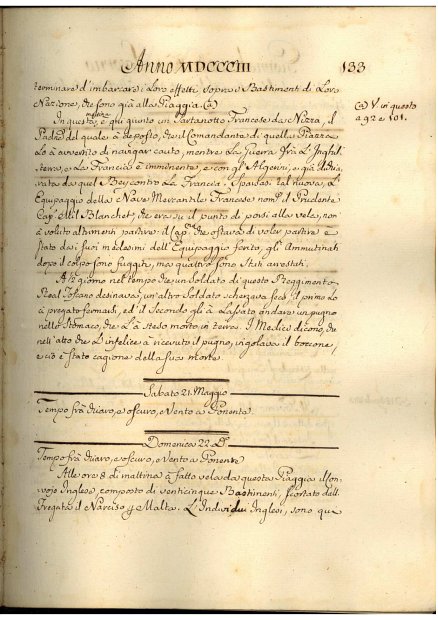 Anno MDCCCIII 133
terminare d'imbarcare i Loro effetti sopra i Bastimenti di Loro
Nazione, che sono già alla Piaggia. (a)
(a) V. in questo
a 92 e 101.
In questa mattina è qui giunto un Tartanotto Francese da Nizza, il
Padrē. del quale à deposto, che il Comandante di quella Piazza
Lo à avvertito di navigar cauto, mentre La Guerra frà L'Inghil
terra, e La Francia è imminente, e con gl'Algerini, e già dichia
rata da quel Bey contro La Francia. Sparsasi tal nuova, L'
Equipaggio della Nave Mercantile Francese nom.ª il Prudente
Cap.º Blanchet, che era su il punto di porsi alla vela, non
à voluto altrimenti partire: il Cap.º che ostava di voler partire è
stato da i suoi medesimi dell'Equipaggio ferito, gli Ammutinati
dopo il colpo sono fuggiti, ma quattro sono stati arrestati.
A ½ giorno nel tempo che un Soldato di questo Reggimento
Real Toscano desinava, un'altro Soldato scherzava seco, il primo Lo
à pregato fermarsi, ed il Secondo gli à Lasciato andare un pugno
nello Stomaco, che Là steso morto in terra. I Medici dicono, che
nell'atto che L'infelice à ricevuto il pugno, ingolava il boccone,
e ciò è stato cagione della sua morte.
Sabato 21. Maggio
Tempo frà chiaro, e oscuro, e Vento a Ponente
Domenica 22. Dº
Tempo frà chiaro, e oscuro, e Vento a Ponente
Alle ore 8 di mattina à fatto vela da questa Piaggia il Con
vojo Inglese, composto di venticinque Bastimenti, scortato dalla
Fregata il Narciso p Malta. L'Individui Inglesi, sono qua